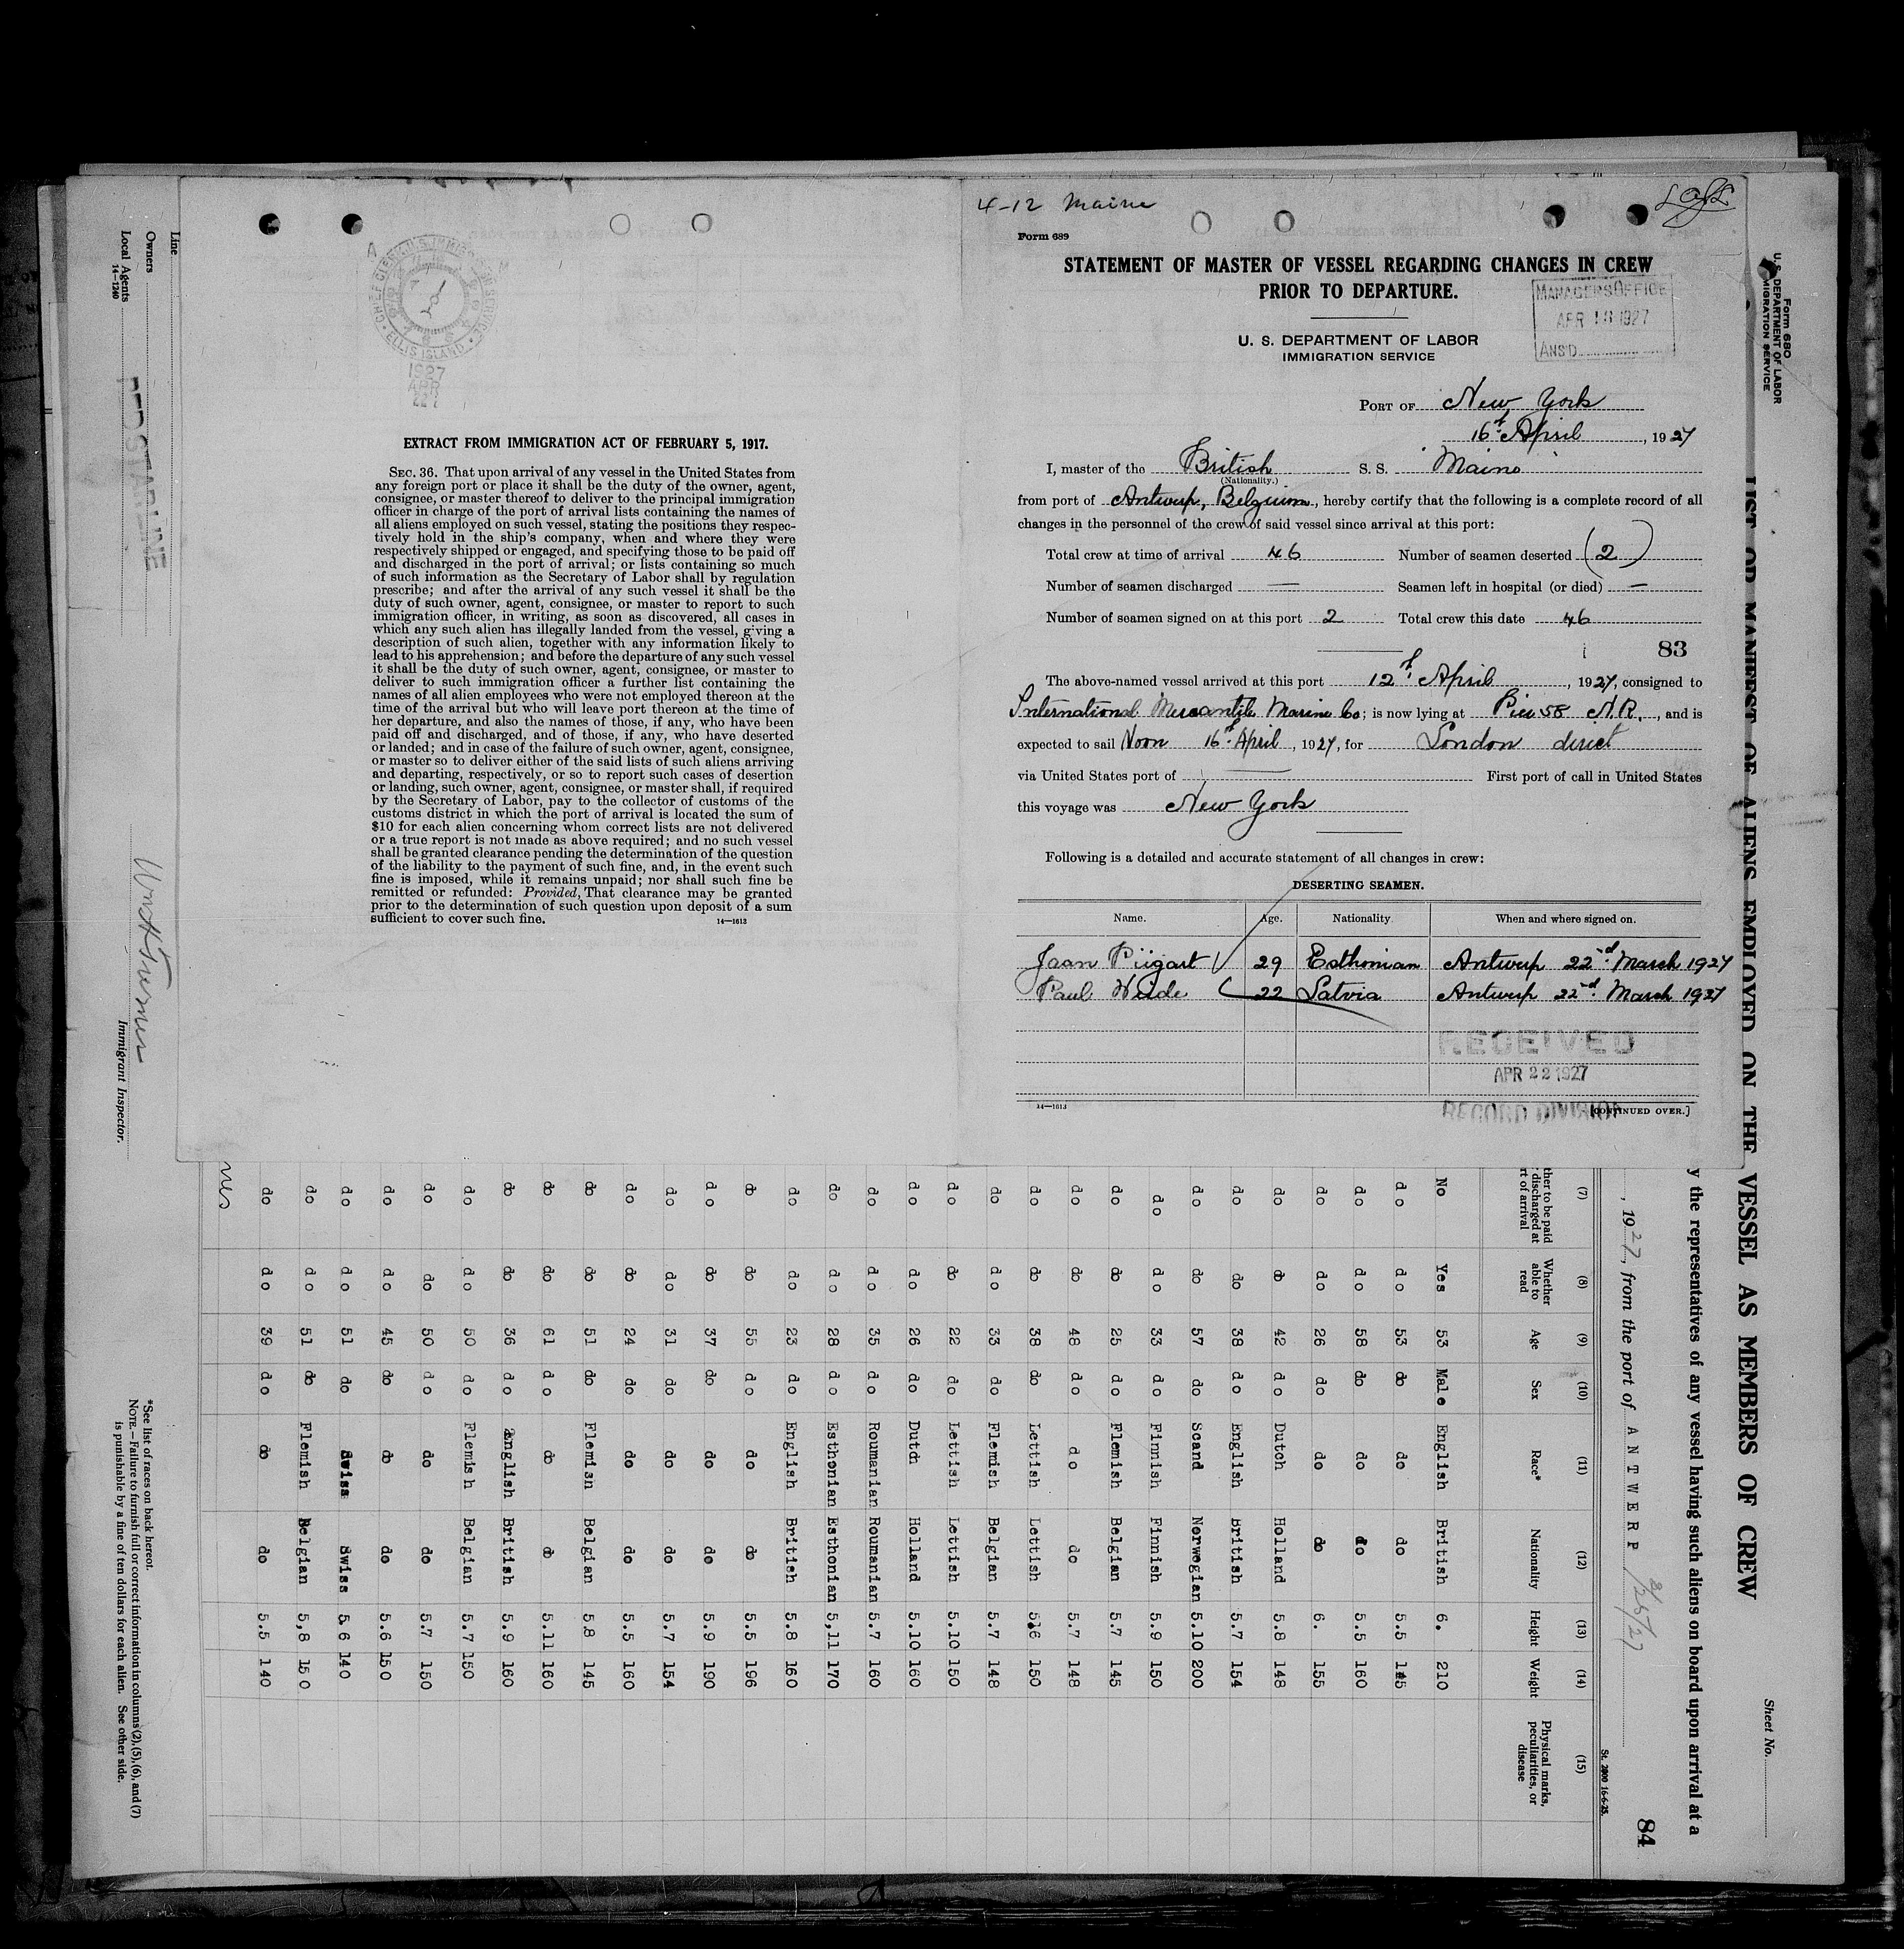 4-12 Maine
Form 689
STATEMENT OF MASTER OF VESSEL REGARDING CHANGES IN CREW
PRIOR TO DEPARTURE.
MANAGER'S OFFICE
APR 18 1927
ANS'D
U. S. DEPARTMENT OF LABOR
IMMIGRATION SERVICE
PORT OF New York
16th April, 1927
I, master of the British S. S. "Maine"
(Nationality.)
from port of Antwerp, Belgium, hereby certify that the following is a complete record of all
changes in the personnel of the crew of said vessel since arrival at this port:
Total crew at time of arrival 46 Number of seamen deserted (2)
Number of seamen discharged — Seamen left in hospital (or died) —
Number of seamen signed on at this port 2 Total crew this date 46
83
The above-named vessel arrived at this port 12th April, 1927, consigned to
International Mercantile Marine Co; is now lying at Pier 58 N.R., and is
expected to sail Noon 16th April, 1927, for London direct
via United States port of — First port of call in United States
this voyage was New York
Following is a detailed and accurate statement of all changes in crew:
DESERTING SEAMEN.
Name. Age. Nationality. When and where signed on.
Jaan Piigart 29 Esthonian Antwerp 22nd March 1927
Paul Weide 22 Latvia Antwerp 22nd March 1927
RECEIVED
APR 22 1927
RECORD DIVISION
14—1613
[CONTINUED OVER.]
CHIEF CLERK U.S. IMMIGRATION SERVICE
ELLIS ISLAND
1927
APR
22
EXTRACT FROM IMMIGRATION ACT OF FEBRUARY 5, 1917.
SEC. 36. That upon arrival of any vessel in the United States from
any foreign port or place it shall be the duty of the owner, agent,
consignee, or master thereof to deliver to the principal immigration
officer in charge of the port of arrival lists containing the names of
all aliens employed on such vessel, stating the positions they respec-
tively hold in the ship's company, when and where they were
respectively shipped or engaged, and specifying those to be paid off
and discharged in the port of arrival; or lists containing so much
of such information as the Secretary of Labor shall by regulation
prescribe; and after the arrival of any such vessel it shall be the
duty of such owner, agent, consignee, or master to report to such
immigration officer, in writing, as soon as discovered, all cases in
which any such alien has illegally landed from the vessel, giving a
description of such alien, together with any information likely to
lead to his apprehension; and before the departure of any such vessel
it shall be the duty of such owner, agent, consignee, or master to
deliver to such immigration officer a further list containing the
names of all alien employees who were not employed thereon at the
time of the arrival but who will leave port thereon at the time of
her departure, and also the names of those, if any, who have been
paid off and discharged, and of those, if any, who have deserted
or landed; and in case of the failure of such owner, agent, consignee,
or master so to deliver either of the said lists of such aliens arriving
and departing, respectively, or so to report such cases of desertion
or landing, such owner, agent, consignee, or master shall, if required
by the Secretary of Labor, pay to the collector of customs of the
customs district in which the port of arrival is located the sum of
$10 for each alien concerning whom correct lists are not delivered
or a true report is not made as above required; and no such vessel
shall be granted clearance pending the determination of the question
of the liability to the payment of such fine, and, in the event such
fine is imposed, while it remains unpaid; nor shall such fine be
remitted or refunded: Provided, That clearance may be granted
prior to the determination of such question upon deposit of a sum
sufficient to cover such fine.
14—1613
Form 680
U. S. DEPARTMENT OF LABOR
IMMIGRATION SERVICE
Sheet No.
LIST OR MANIFEST OF ALIENS EMPLOYED ON THE VESSEL AS MEMBERS OF CREW
y the representatives of any vessel having such aliens on board upon arrival at a
, 1927, from the port of ANTWERP 3/25/27
84
St. 2800 16-6-25.
(7) (8) (9) (10) (11) (12) (13) (14) (15)
ther to be paid discharged at rt of arrival Whether able to read Age Sex Race* Nationality Height Weight Physical marks, peculiarities, or disease
No Yes 53 Male English British 6. 210
do do 53 do do do 5.5 145
do do 58 do do do 5.5 160
do do 26 do do do 6. 155
do do 42 do Dutch Holland 5.8 148
do do 38 do English British 5.7 154
do do 57 do Scand Norwegian 5.10 200
do do 33 do Finnish Finnish 5.9 150
do do 25 do Flemish Belgian 5.7 145
do do 48 do do do 5.7 148
do do 38 do Lettish Lettish 5.6 150
do do 33 do Flemish Belgian 5.7 148
do do 22 do Lettish Lettish 5.10 150
do do 26 do Dutch Holland 5.10 160
do do 35 do Roumanian Roumanian 5.7 160
do do 28 do Esthonian Esthonian 5,11 170
do do 23 do English British 5.8 160
do do 55 do do do 5.5 196
do do 37 do do do 5.9 190
do do 31 do do do 5.7 154
do do 24 do do do 5.5 160
do do 51 do Flemish Belgian 5.8 145
do do 61 do do do 5.11 160
do do 36 do English British 5.9 160
do do 50 do Flemish Belgian 5.7 150
do do 50 do do do 5.7 150
do do 45 do do do 5.6 150
do do 51 do Swiss Swiss 5.6 140
do do 51 do Flemish Belgian 5,8 150
do do 39 do do do 5.5 140
Line
Owners
Local Agents
14—1240
RED STAR LINE
Immigrant Inspector.
*See list of races on back hereof.
NOTE.—Failure to furnish full or correct information in columns (2), (5), (6), and (7)
is punishable by a fine of ten dollars for each alien. See other side.